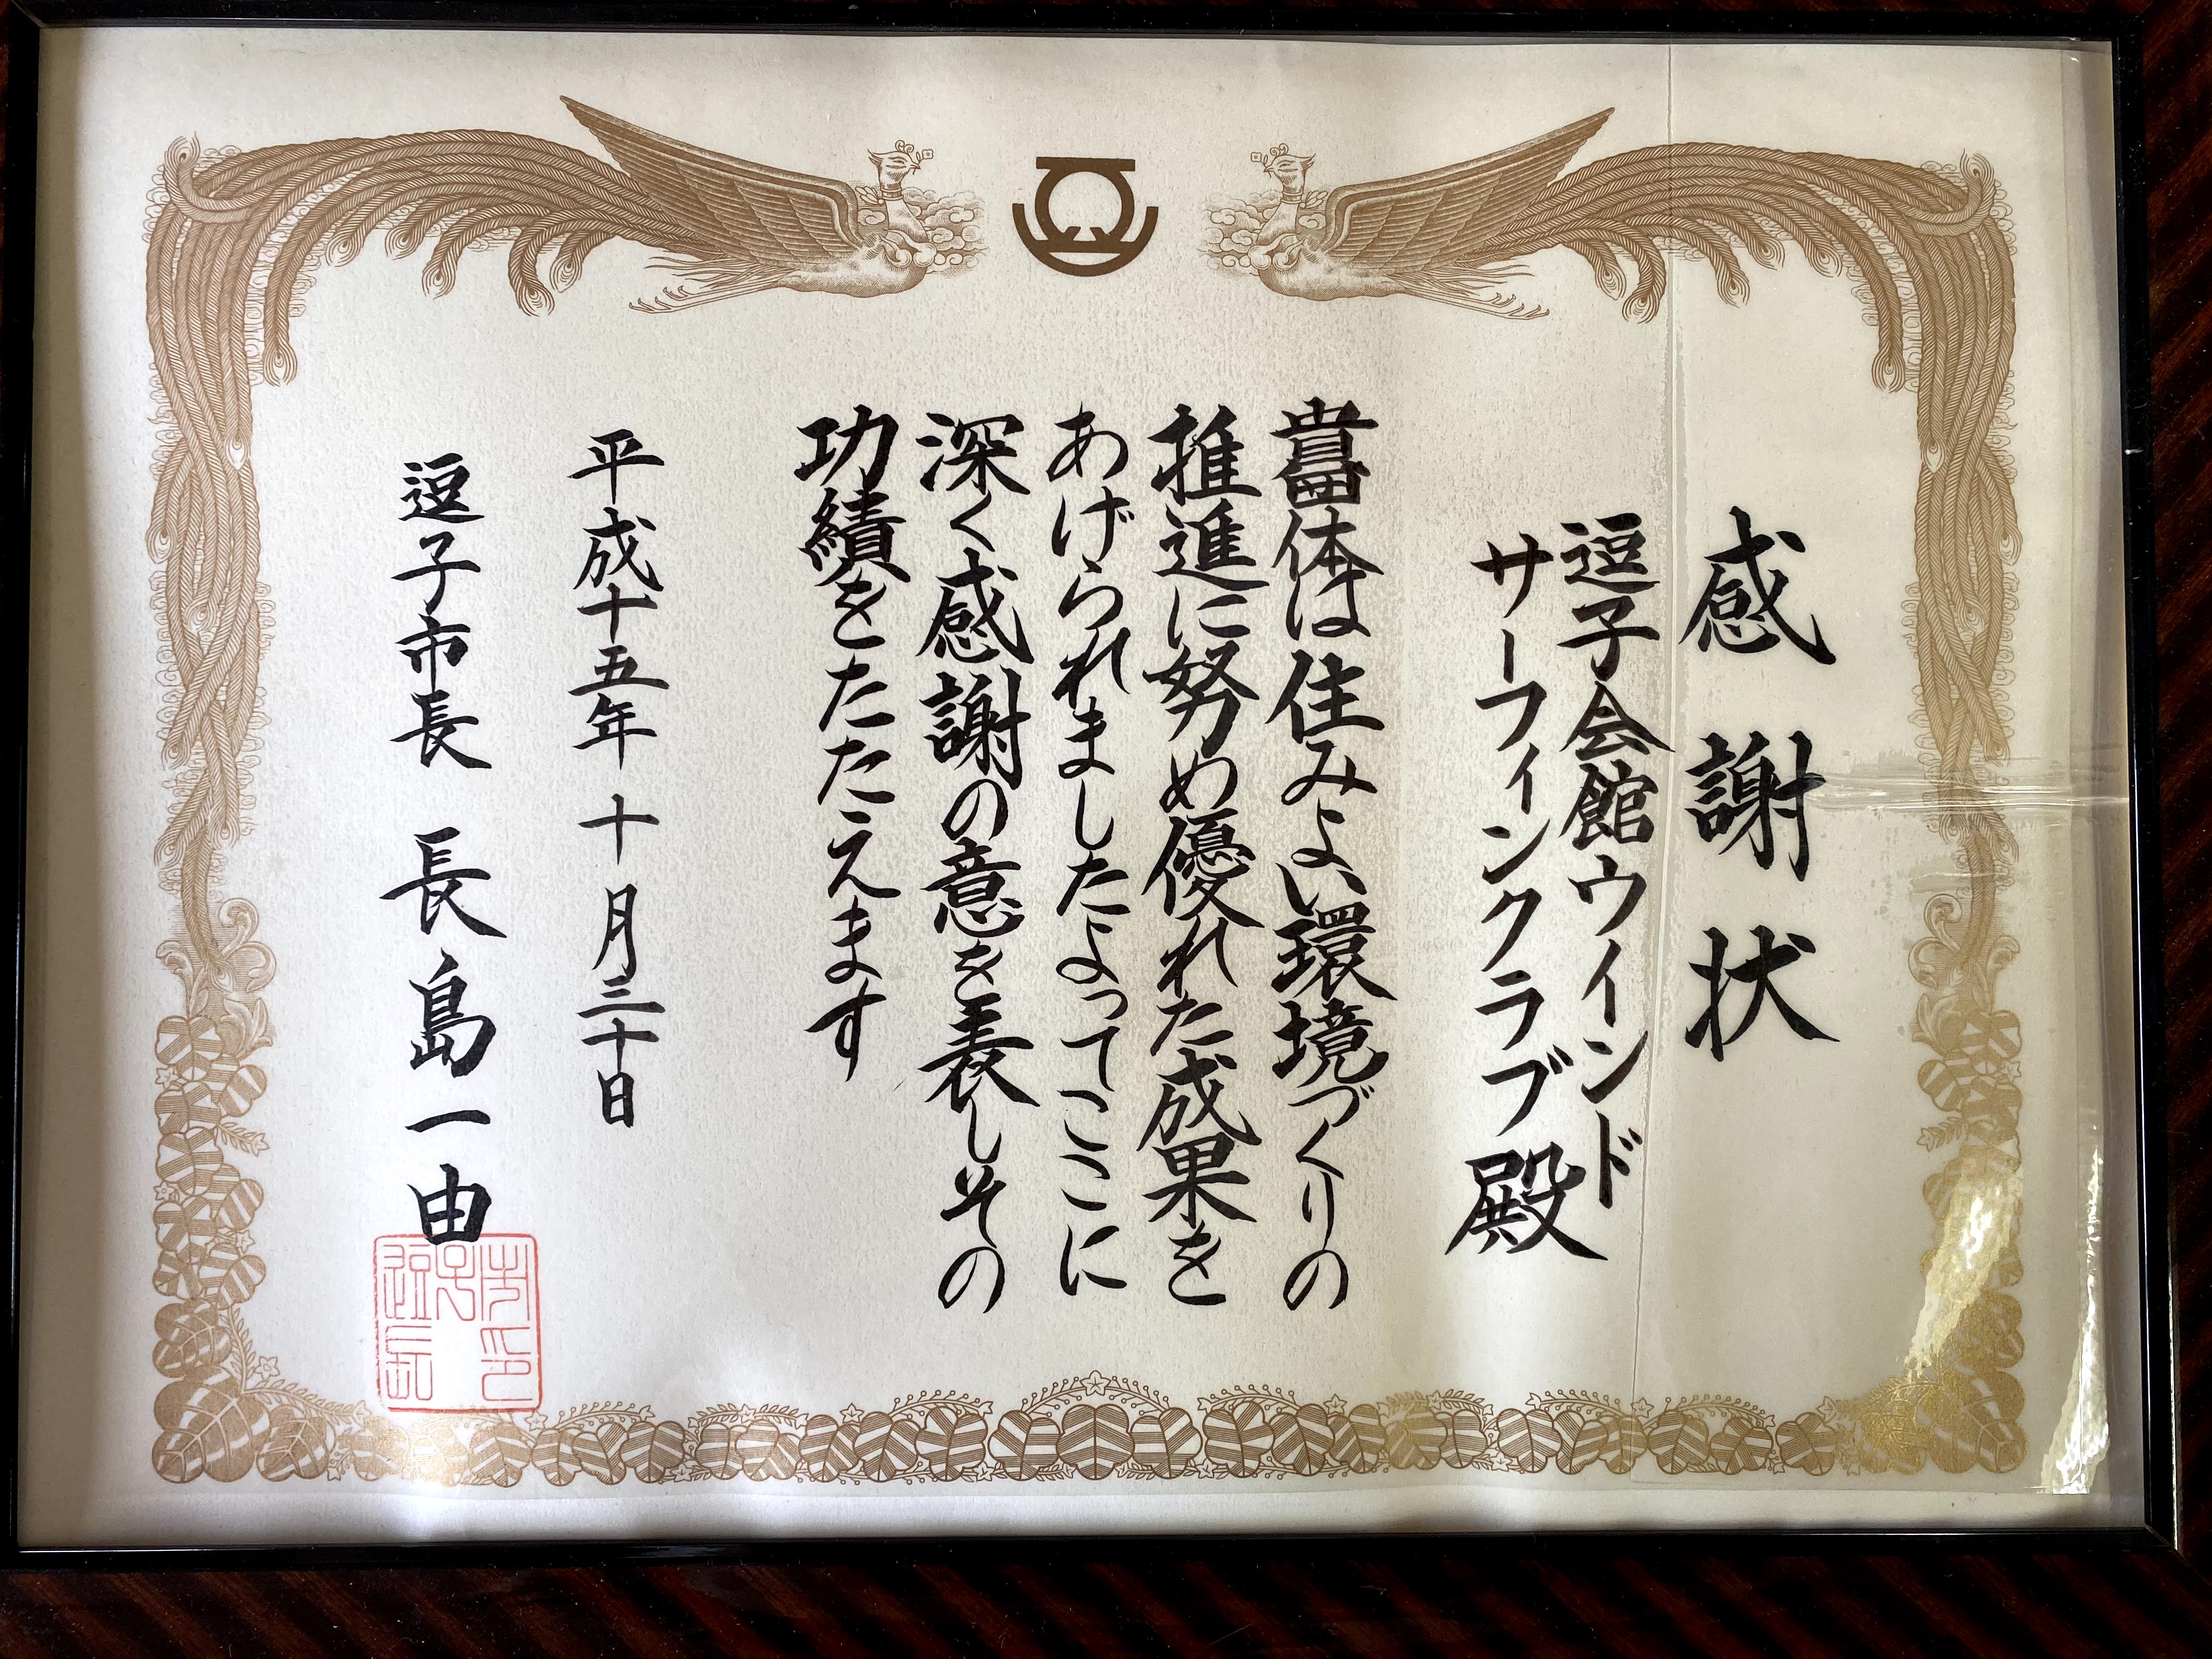 感謝状
逗子会館ウインド
サーフィンクラブ殿
貴団体は住みよい環境づくりの
推進に努め優れた成果を
あげられましたよってここに
深く感謝の意を表しその
功績をたたえます
平成十五年十月三十日
逗子市長 長島一由
逗子市長印